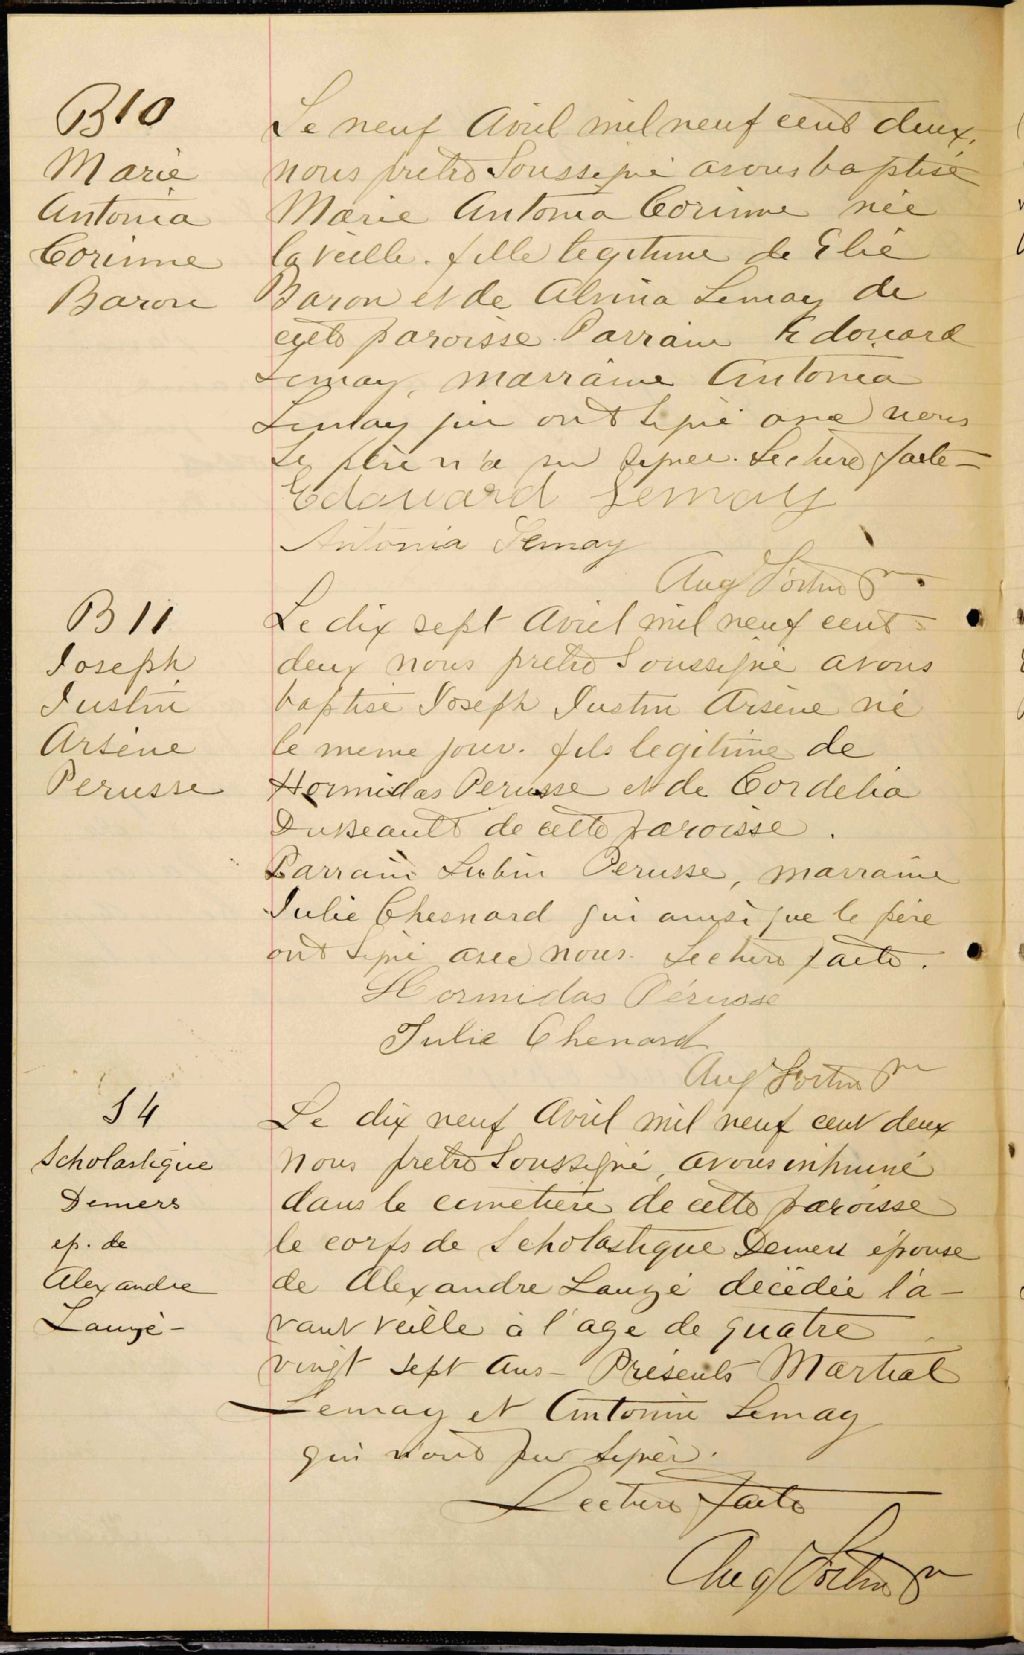 B10
Marie
Antonia
Corinne
Baron
Le neuf Avril mil neuf cent deux,
nous prêtre Soussigné avons baptisé
Marie Antonia Corinne née
la veille. fille legitime de Elie
Baron et de Alvina Lemay de
cette paroisse. Parrain Edouard
Lemay, marraine Antonia
Lemay qui ont signé avec nous
Le père n'a su signer. Lecture faite -
Edouard Lemay
Antonia Lemay
Aug Fortin ptr
B11
Joseph
Justin
Arsène
Perusse
Le dix sept Avril mil neuf cent
deux nous prêtre Soussigné avons
baptisé Joseph Justin Arsène né
le meme jour. fils legitime de
Hormidas Perusse et de Cordelia
Dubeault de cette paroisse.
Parrain Lubin Perusse, marraine
Julie Chesnard qui ainsi que le père
ont signé avec nous. Lecture faite.
Hormidas Pérusse
Julie Chenard
Aug Fortin ptr
S4
Scholastique
Demers
ep. de
Alexandre
Lauzé -
Le dix neuf Avril mil neuf cent deux
nous prêtre Soussigné, avons inhumé
dans le cimetière de cette paroisse
le corps de Scholastique Demers épouse
de Alexandre Lauzé décédée l'a-
vant veille à l'age de quatre
vingt sept ans - Présents Martial
Lemay et Antonin Lemay
qui n'ont pu signer.
Lecture faite
Aug Fortin ptr